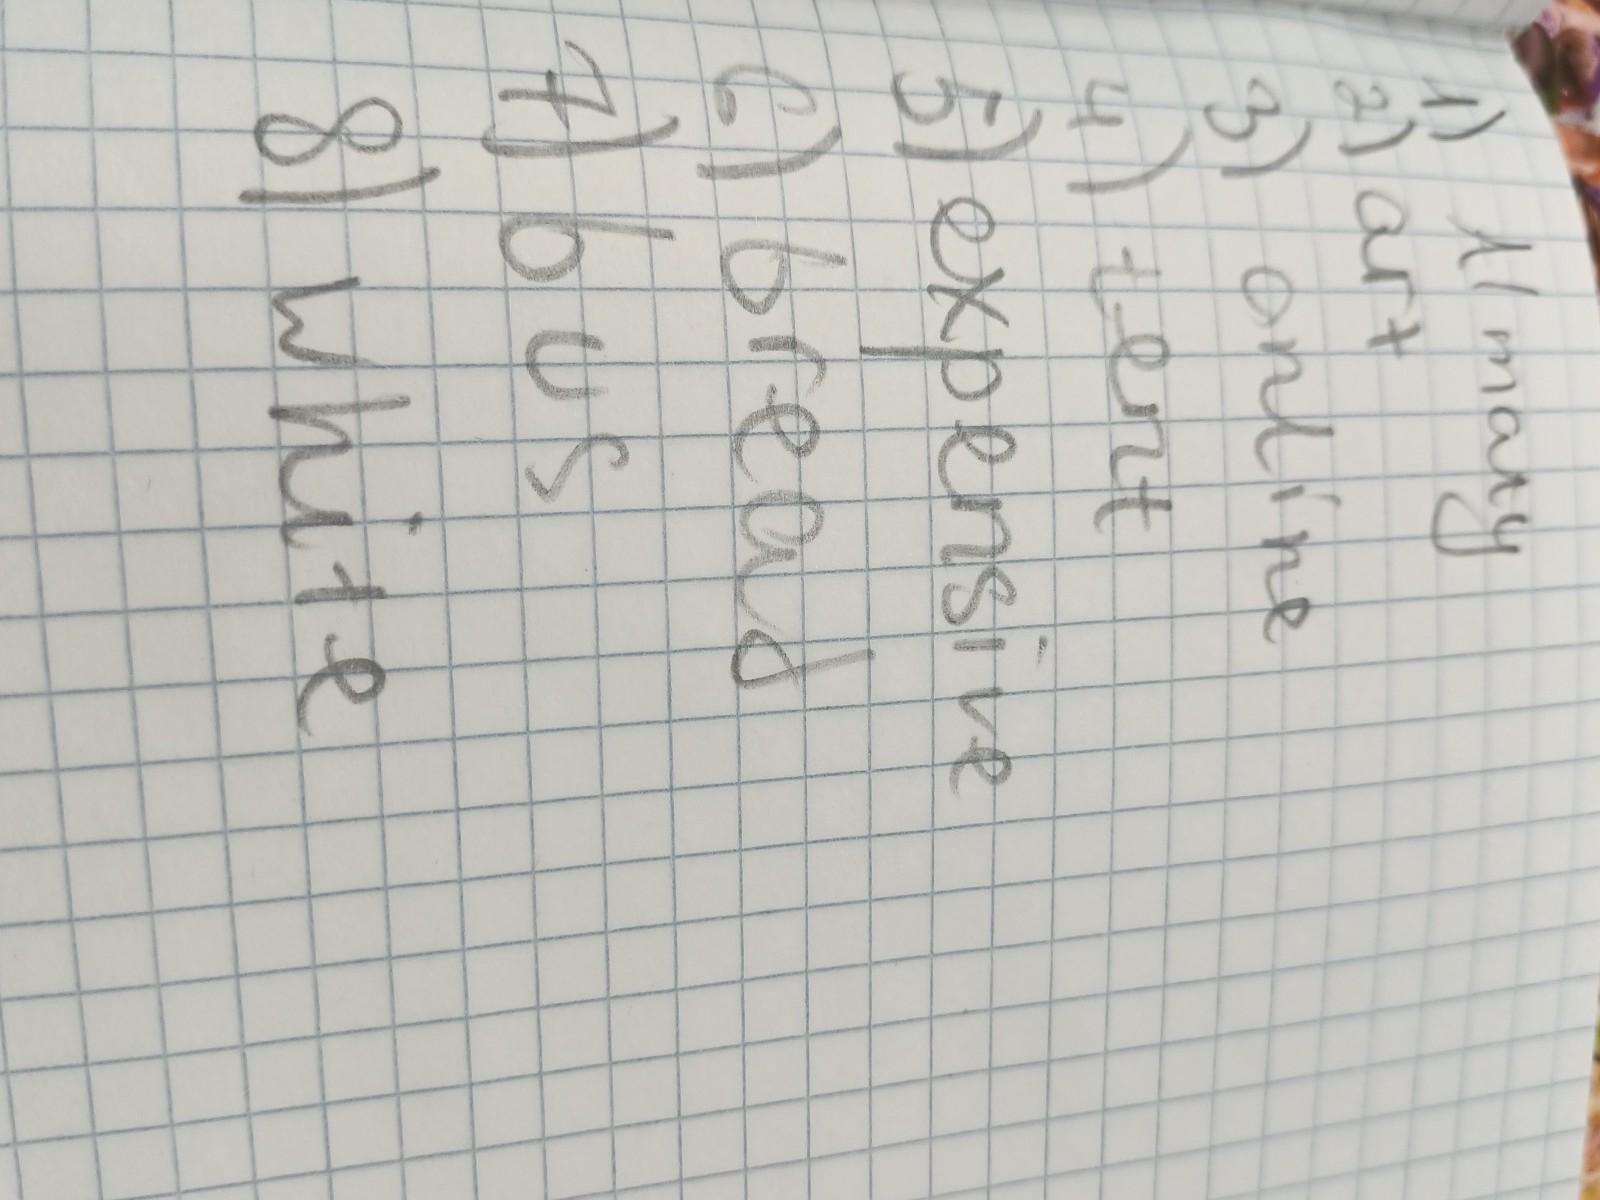 1) 11 many
2) art
3) online
4) tent
5) expensive
6) bread
7) bus
8) white